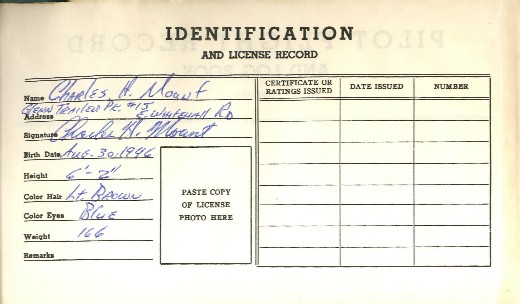 IDENTIFICATION
AND LICENSE RECORD
Name Charles H. Mount
Trailer Pk. #15
Address E. Whitehall Rd
Signature Charles H. Mount
Birth Date Aug-30-1946
Height 6'-2"
Color Hair Lt. Brown
Color Eyes Blue
Weight 166
Remarks
PASTE COPY
OF LICENSE
PHOTO HERE
CERTIFICATE OR
RATINGS ISSUED
DATE ISSUED
NUMBER
PILOT FLIGHT RECORD
AND LOG BOOK